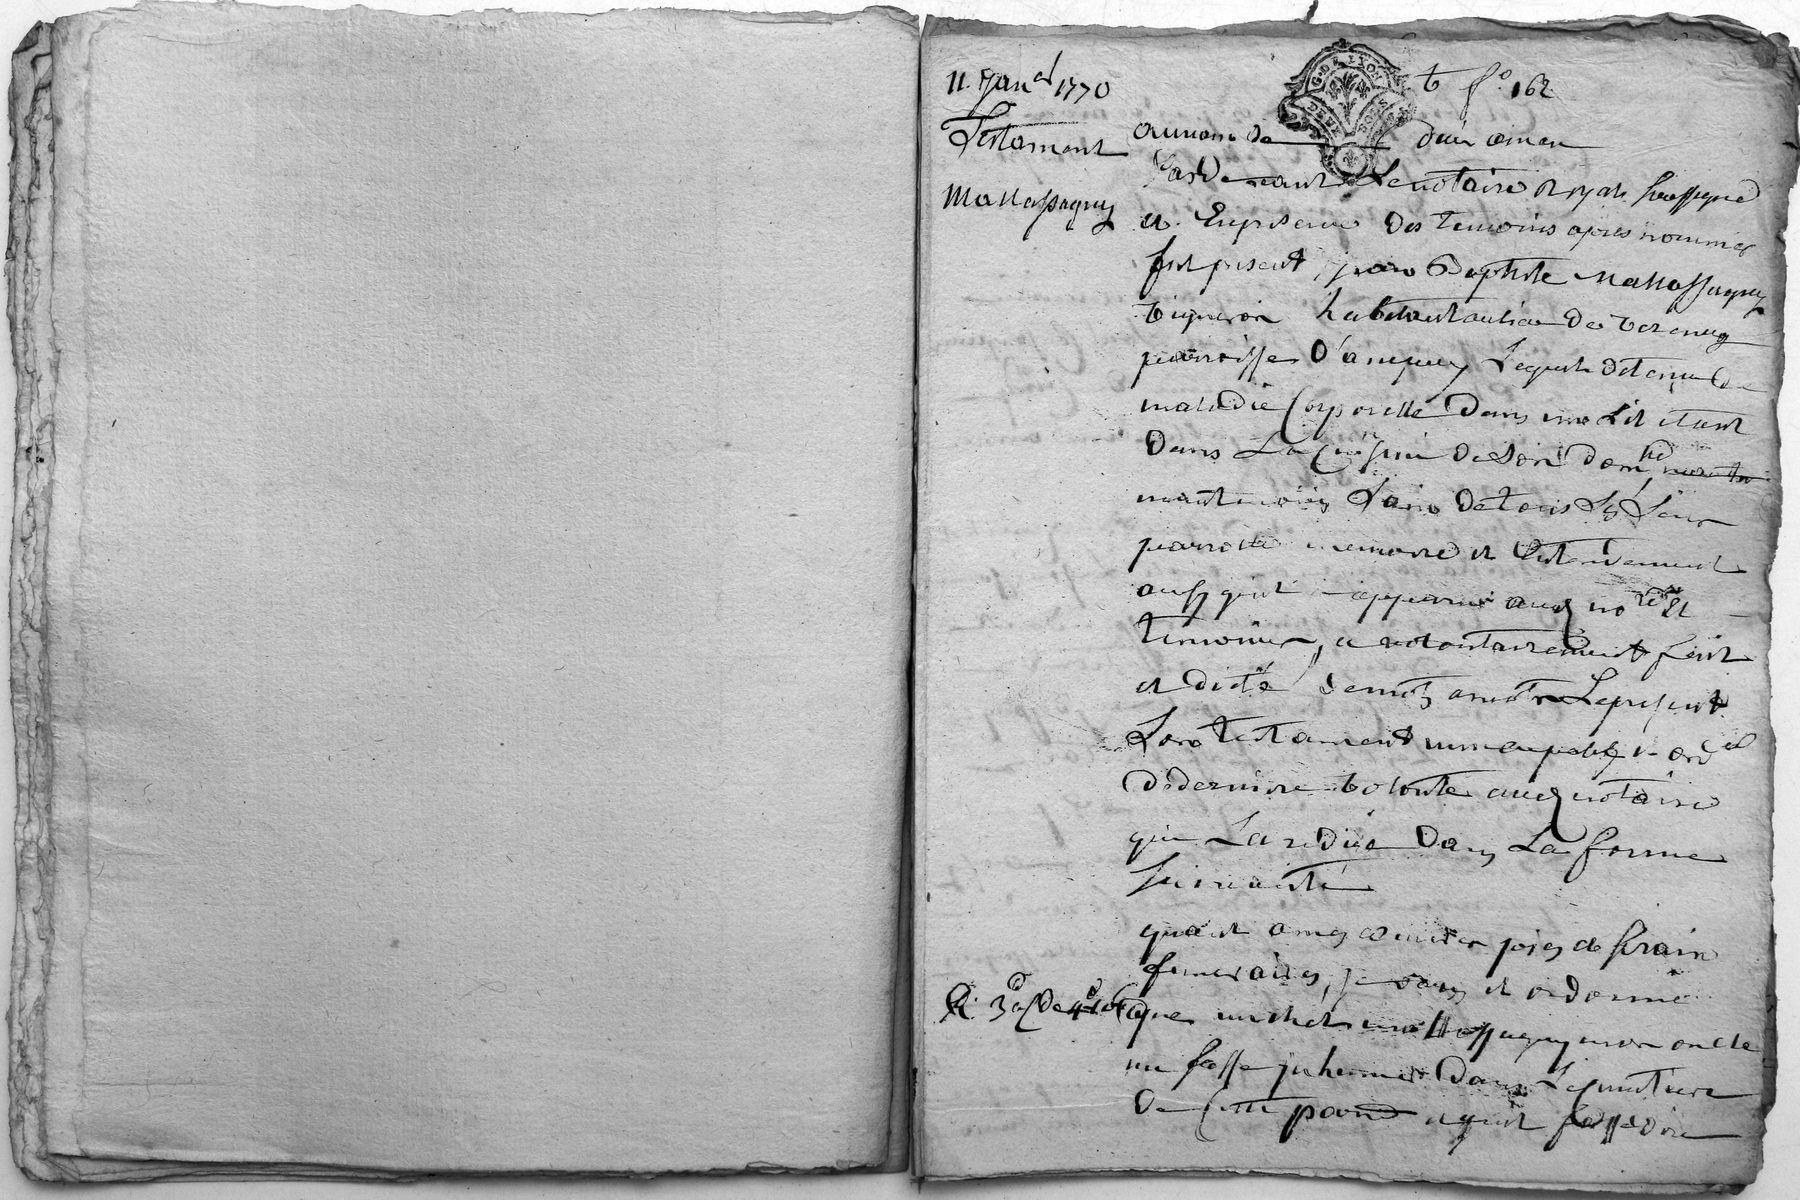 11. Janer 1770
Testament
Mattassagny
G. DE LYON
DEUX SOLS
t fo. 162
au nom de dieu amen
Pardevant Le notaire Royal soussigné
et En presence des temoins apres nommés
fut present jean Baptiste Mattassagny
vigneron habitant au lieu de verenay
parroisse d'ampuy Lequel detenu de
maladie Corporelle dans un Lit etant
dans La Cuisine de son domlle
maintenois sain de tous Ses sens
parrolle memoire et Entendement
ausy qu'il a apparu audt nore et
temoins, a volontairement fait
et dicté de mot a mot Le present
Son testament nuncupatif et ord
de derniere volonté audt notaire
qui La redigé dans La forme
suivante
quant a mes œuvres pies et frais
funeraires, je veux et ordonne
que michel mattassagny mon oncle
me fasse inhumer dans Le cimetiere
de Cette parse et qu'il fasse dire